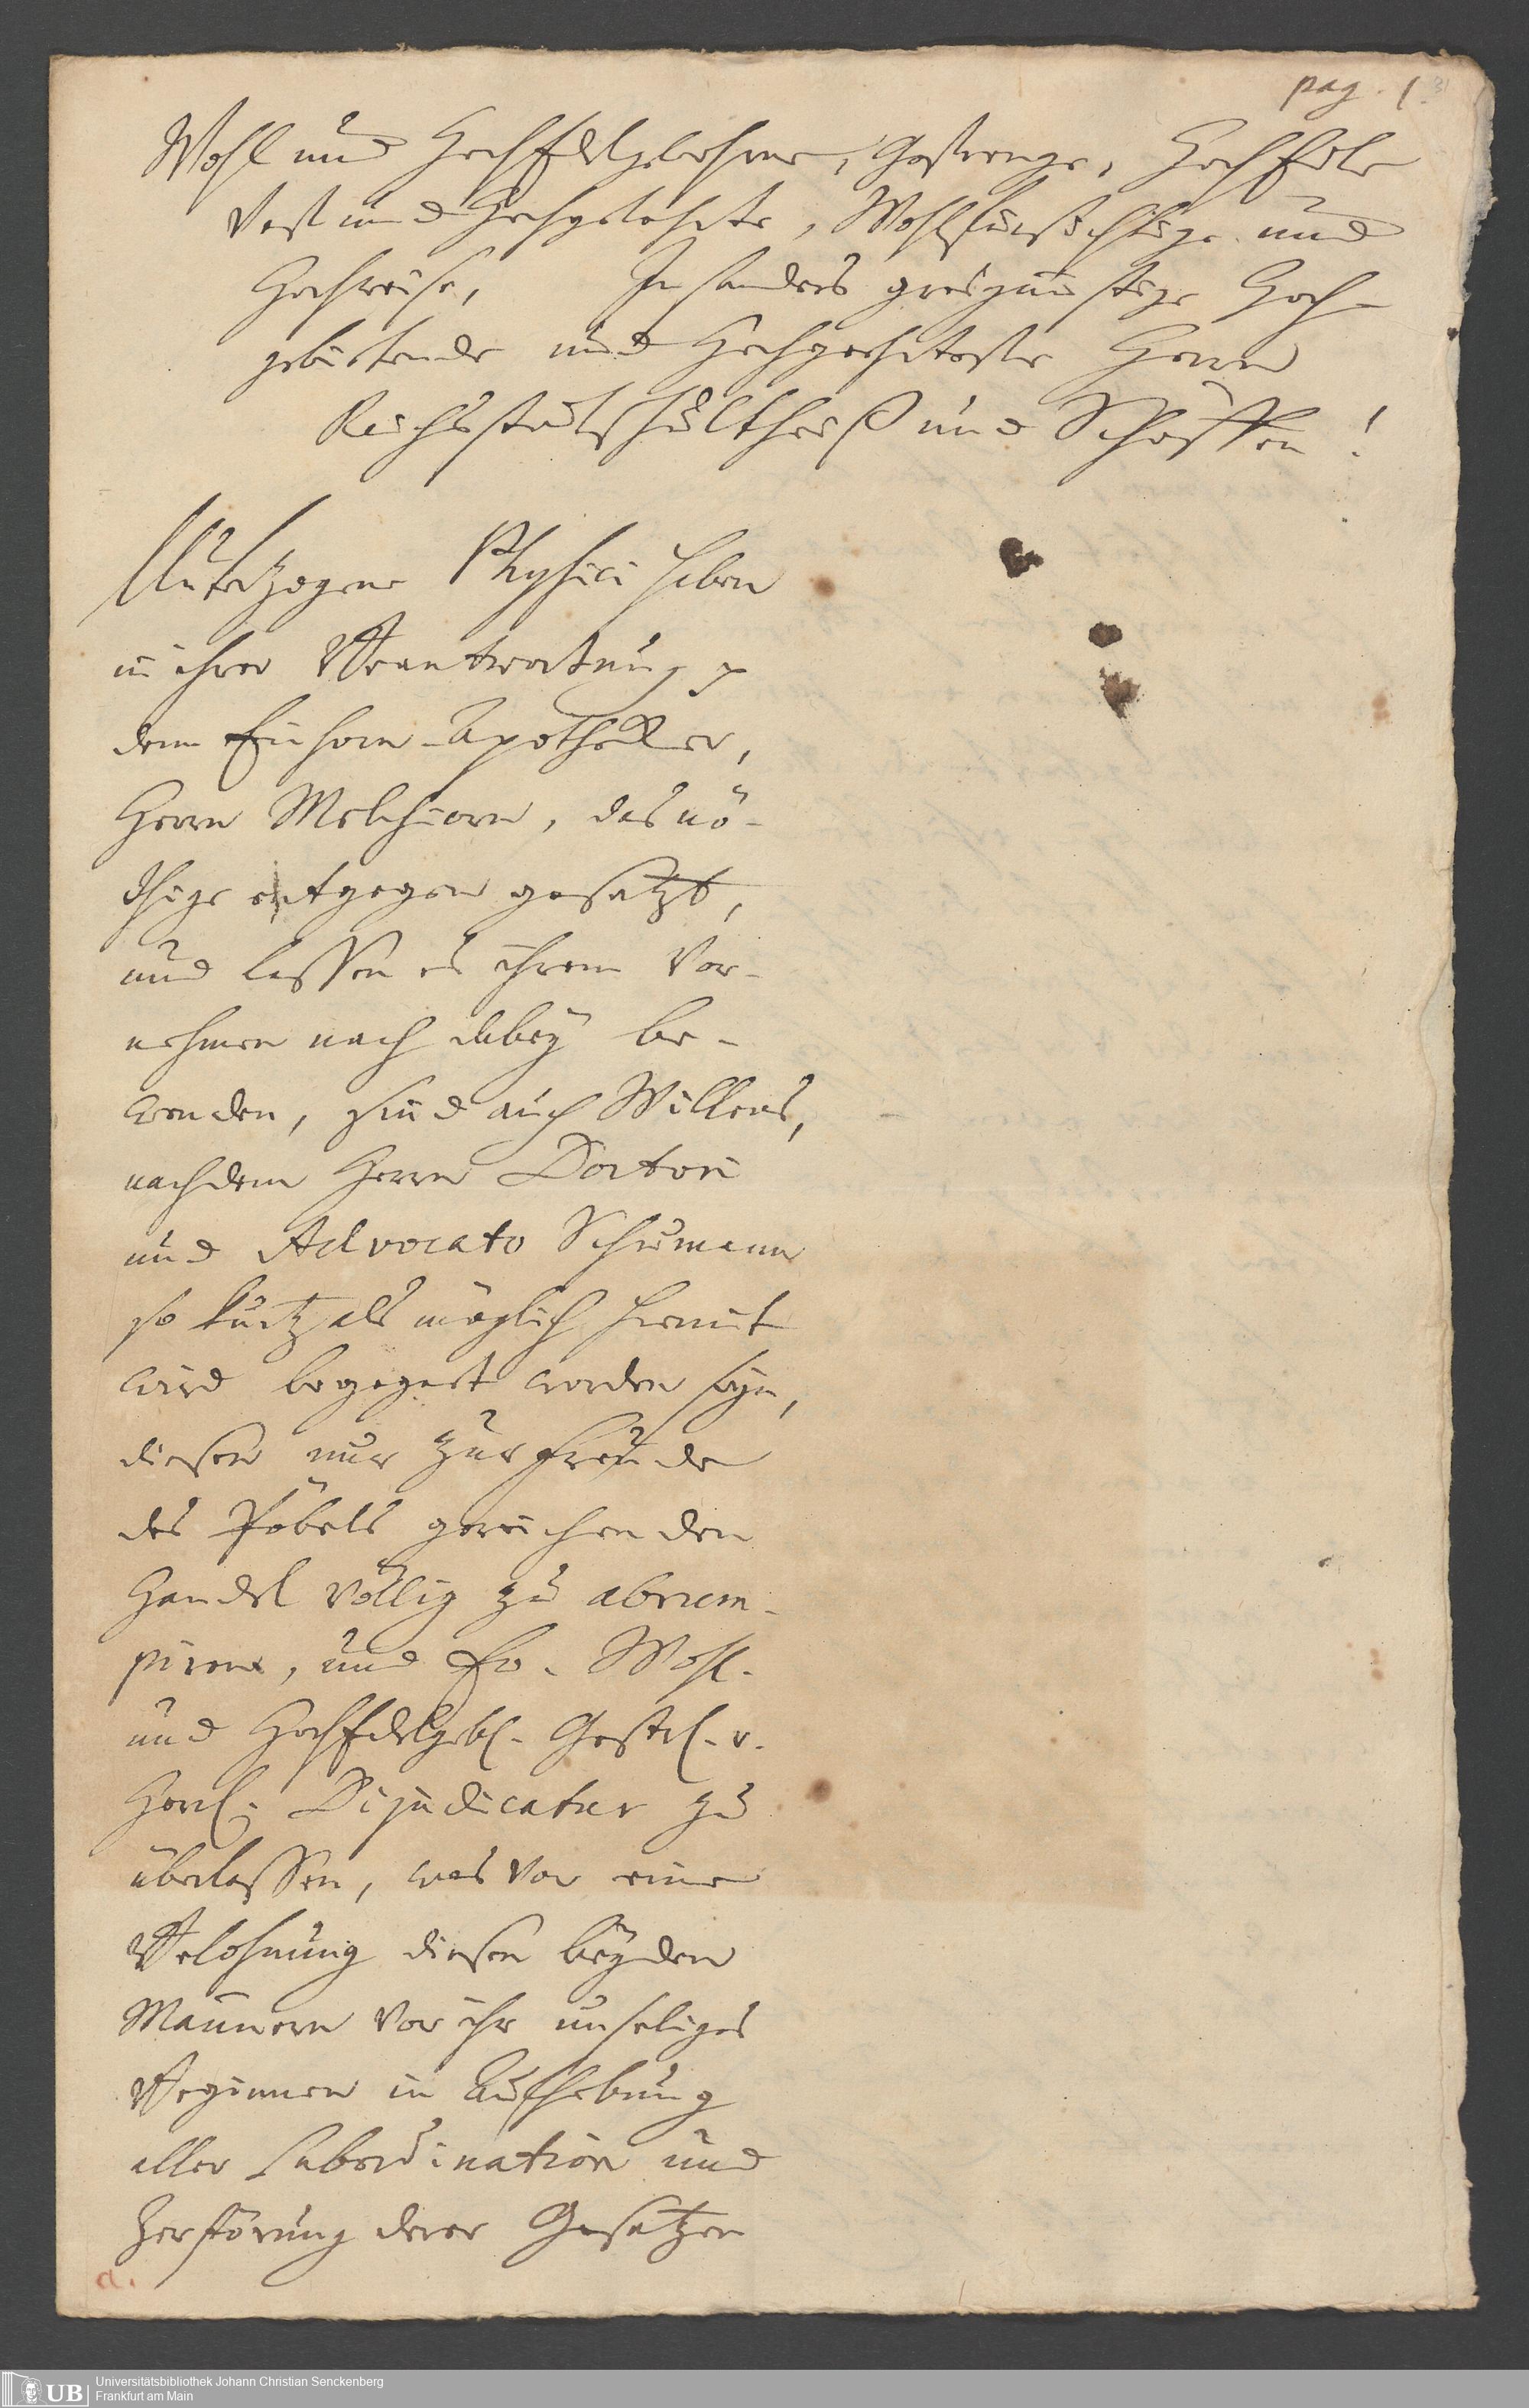 pag. 1. 31
Wohl und HochEdelgebohrne, Gestrenge, HochEdle
Vest und Hochgelahrte, Wohlfürsichtige und
Hochweise, Insonders grosgünstige Hoch-
gebietende und Hochgeehrteste Herrn
Reichsstattschultheiß und Schöffen!
Unterzogene Physici haben
in ihrer Verantwortung
dem Einhorn-Apothecker,
Herrn Melchiorn, das nö-
thige entgegen gesetzt,
und lassen es ihrem Vor-
nehmen nach dabey be-
wenden, sind auch Willens,
nachdem Herrn Doctori
und Advocato Schumann
so kurtz als möglich hiemit
wird begegnet worden seyn,
diesen nur zur Freude
des Pöbels gereichenden
Handel völlig zu abrum-
piren, und Ew. Wohl-
und HochEdelgebl. Gestrl. v.
Herrl. Dijudicatur zu
überlassen, was vor eine
Belohnung diesen beyden
Männern vor ihr unseliges
Beginnen in Aufhebung
aller Subordination und
Zerstörung derer Gesetzen
a.
UB Universitätsbibliothek Johann Christian Senckenberg
Frankfurt am Main